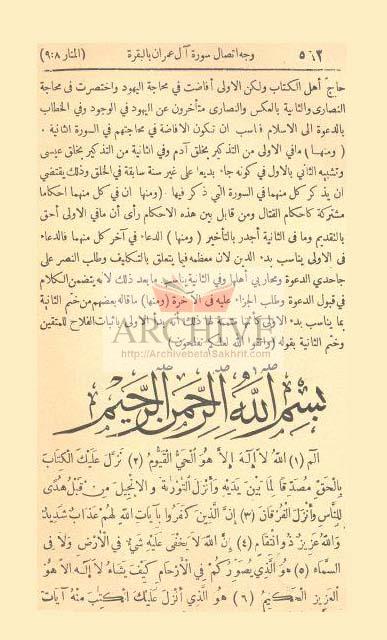 ٥٦٣ وجه اتصال سورة آل عمران بالبقرة (المنار ٩:٨)
حاجّ أهل الكتاب ولكن الاولى أفاضت في محاجة اليهود واختصرت في محاجة
النصارى والثانية بالعكس والنصارى متأخرون عن اليهود في الوجود وفي الخطاب
بالدعوة الى الاسلام فناسب ان تكون الافاضة في محاجتهم في السورة الثانية .
( ومنها ) مافي الاولى من التذكير بخلق آدم وفي الثانية من التذكير بخلق عيسى
وتشبيه الثاني بالاول في كونه جاء بديعا على غير سنة سابقة في الخلق وذلك يقتضي
ان يذكر كل منهما في السورة التي ذكر فيها . (ومنها) ان في كل منهما احكاما
مشتركة كاحكام القتال ومن قابل بين هذه الاحكام رأى أن مافي الاولى أحق
بالتقديم وما في الثانية أجدر بالتأخير ( ومنها ) الدعاء في آخر كل منهما فالدعاء
في الاولى يناسب بدء الدين لان معظمه فيما يتعلق بالتكليف وطلب النصر على
جاحدي الدعوة ومحاربي أهلها وفي الثانية يناسب مابعد ذلك لانه يتضمن الكلام
في قبول الدعوة وطلب الجزاء عليه في الآخرة (ومنها) ماقاله بعضهم من ختم الثانية
بما يناسب بدء الاولى ذلك أنه بدأ الاولى باثبات الفلاح للمتقين
وختم الثانية بقوله (واتقوا الله لعلكم تفلحون)
ARCHIVE
http://Archivebeta.Sakhrit.com
بسم الله الرحمن الرحيم
الم (١) اللهُ لاَ إلهَ إلاَّ هُوَ الْحَيُّ الْقَيُّومُ (٢) نَزَّلَ عَلَيْكَ الْكِتَابَ
بِالْحَقِّ مُصَدِّقًا لِمَا بَيْنَ يَدَيْهِ وَأَنْزَلَ التَّوْرَاةَ وَ الإنجيلَ مِن قَبْلُ هُدًى
لِلنَّاسِ وَأَنْزَلَ الْفُرْقَانَ (٣) إِنَّ الَّذِينَ كَفَرُوا بِآيَاتِ اللهِ لَهُمْ عَذَابٌ شَدِيدٌ
وَاللهُ عَزِيزٌ ذُو انْتِقَامٍ (٤) إِنَّ اللهَ لاَ يَخْفَى عَلَيْهِ شَيْءٌ فِي الْأَرْضِ وَلاَ فِي
السَّمَاءِ (٥) هُوَ الَّذِي يُصَوِّرُكُمْ فِي الْأَرْحَامِ كَيْفَ يَشَاءُ لاَ إِلهَ إلاَّ هُوَ
الْعَزِيزُ الْحَكِيمُ (٦) هُوَ الَّذِي أَنْزَلَ عَلَيْكَ الْكِتَابَ مِنْهُ آيَاتٌ